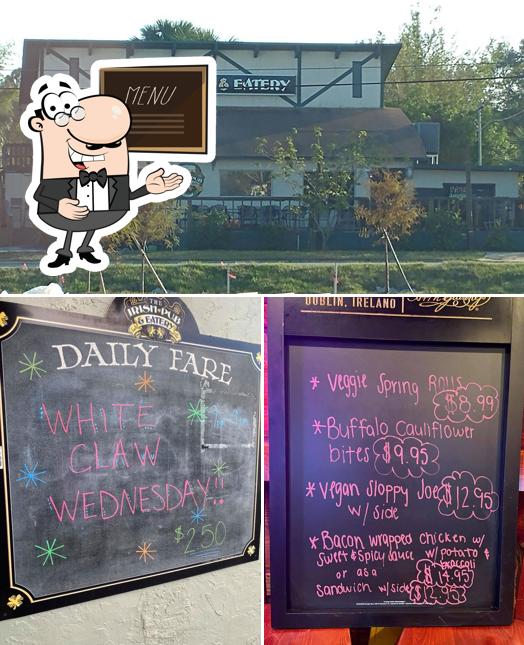 MENU
& EATERY
THE
IRISH PUB
& EATERY
DAILY FARE
WHITE
CLAW
WEDNESDAY!!
$2.50
DUBLIN, IRELAND
* Veggie Spring Rolls
$8.99
* Buffalo Cauliflower
bites $9.95
* Vegan Sloppy Joe $12.95
w/ side
* Bacon wrapped chicken w/
sweet & spicy sauce w/ potato &
broccoli
or as a $14.95
sandwich w/side $12.95